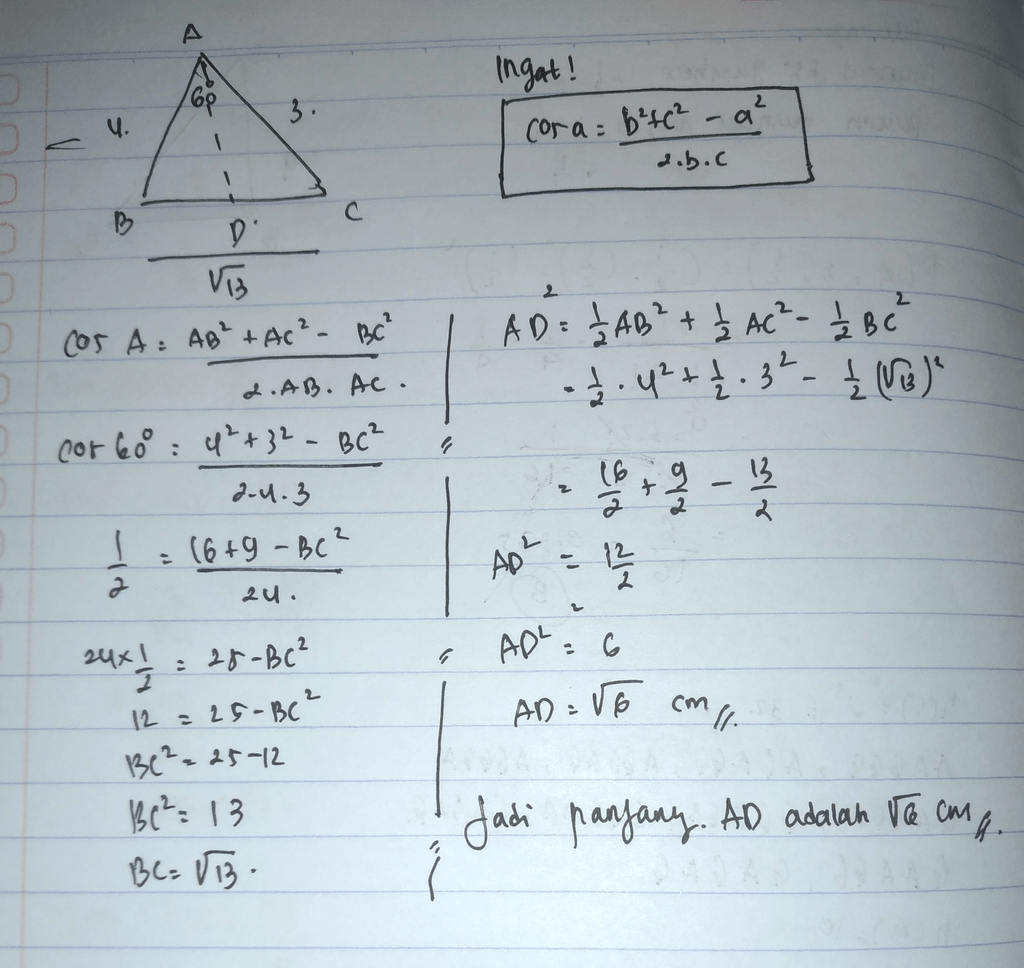 A
60
4.
3.
B
D.
C
√13
Ingat!
cos a = b²+c² - a²
2.b.c
cos A = AB² + AC² - BC²
2.AB. AC.
cos 60° = 4² + 3² - BC²
2.4.3
1/2 = 16+9 - BC²
24.
24×1/2 = 25-BC²
12 = 25-BC²
BC² = 25-12
BC² = 13
BC = √13.
AD² = 1/2 AB² + 1/2 AC² - 1/2 BC²
= 1/2 . 4² + 1/2 . 3² - 1/2 (√13)²
= 16/2 + 9/2 - 13/2
AD² = 12/2
AD² = 6
AD = √6 cm //.
Jadi panjang. AD adalah √6 cm //.